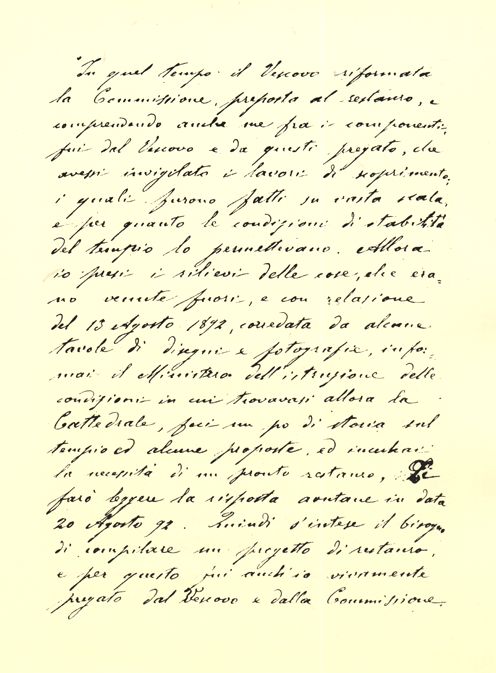 "In quel tempo il Vescovo riformata
la Commissione, preposta al restauro, e
comprendendo anche me fra i componenti,
fui dal Vescovo e da questi pregato, che
avessi invigilato i lavori di scoprimento,
i quali furono fatti su vasta scala,
e per quanto le condizioni di stabilità
del tempio lo permettevano. Allora
io presi i rilievi delle cose, che era=
no venute fuori, e con relazione
del 13 Agosto 1892, corredata da alcune
tavole di disegni e fotografie, infor=
mai il Ministero dell'istruzione delle
condizioni in cui trovavasi allora la
Cattedrale, feci un po di storia sul
tempio ed alcune proposte, ed inculcai
la necessità di un pronto restauro,
farò leggere la risposta avutane in data
20 Agosto 92. Quindi s'intese il bisogno
di compilare un progetto di restauro,
e per questo fui anch'io vivamente
pregato dal Vescovo e dalla Commissione.